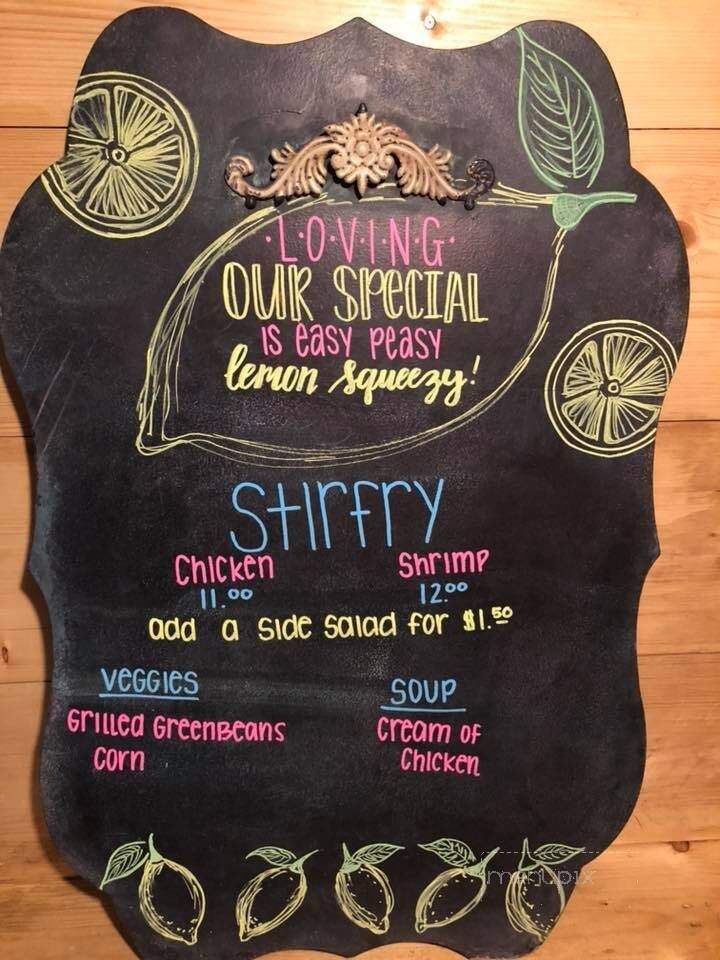 ·L·O·V·I·N·G·
OUR SPECIAL
IS EASY PEASY
lemon squeezy!
STIRFRY
CHICKEN SHRIMP
11.00 12.00
add a side salad for $1.50
VEGGIES SOUP
GRILLED GREENBEANS CREAM OF
CORN CHICKEN
menupix